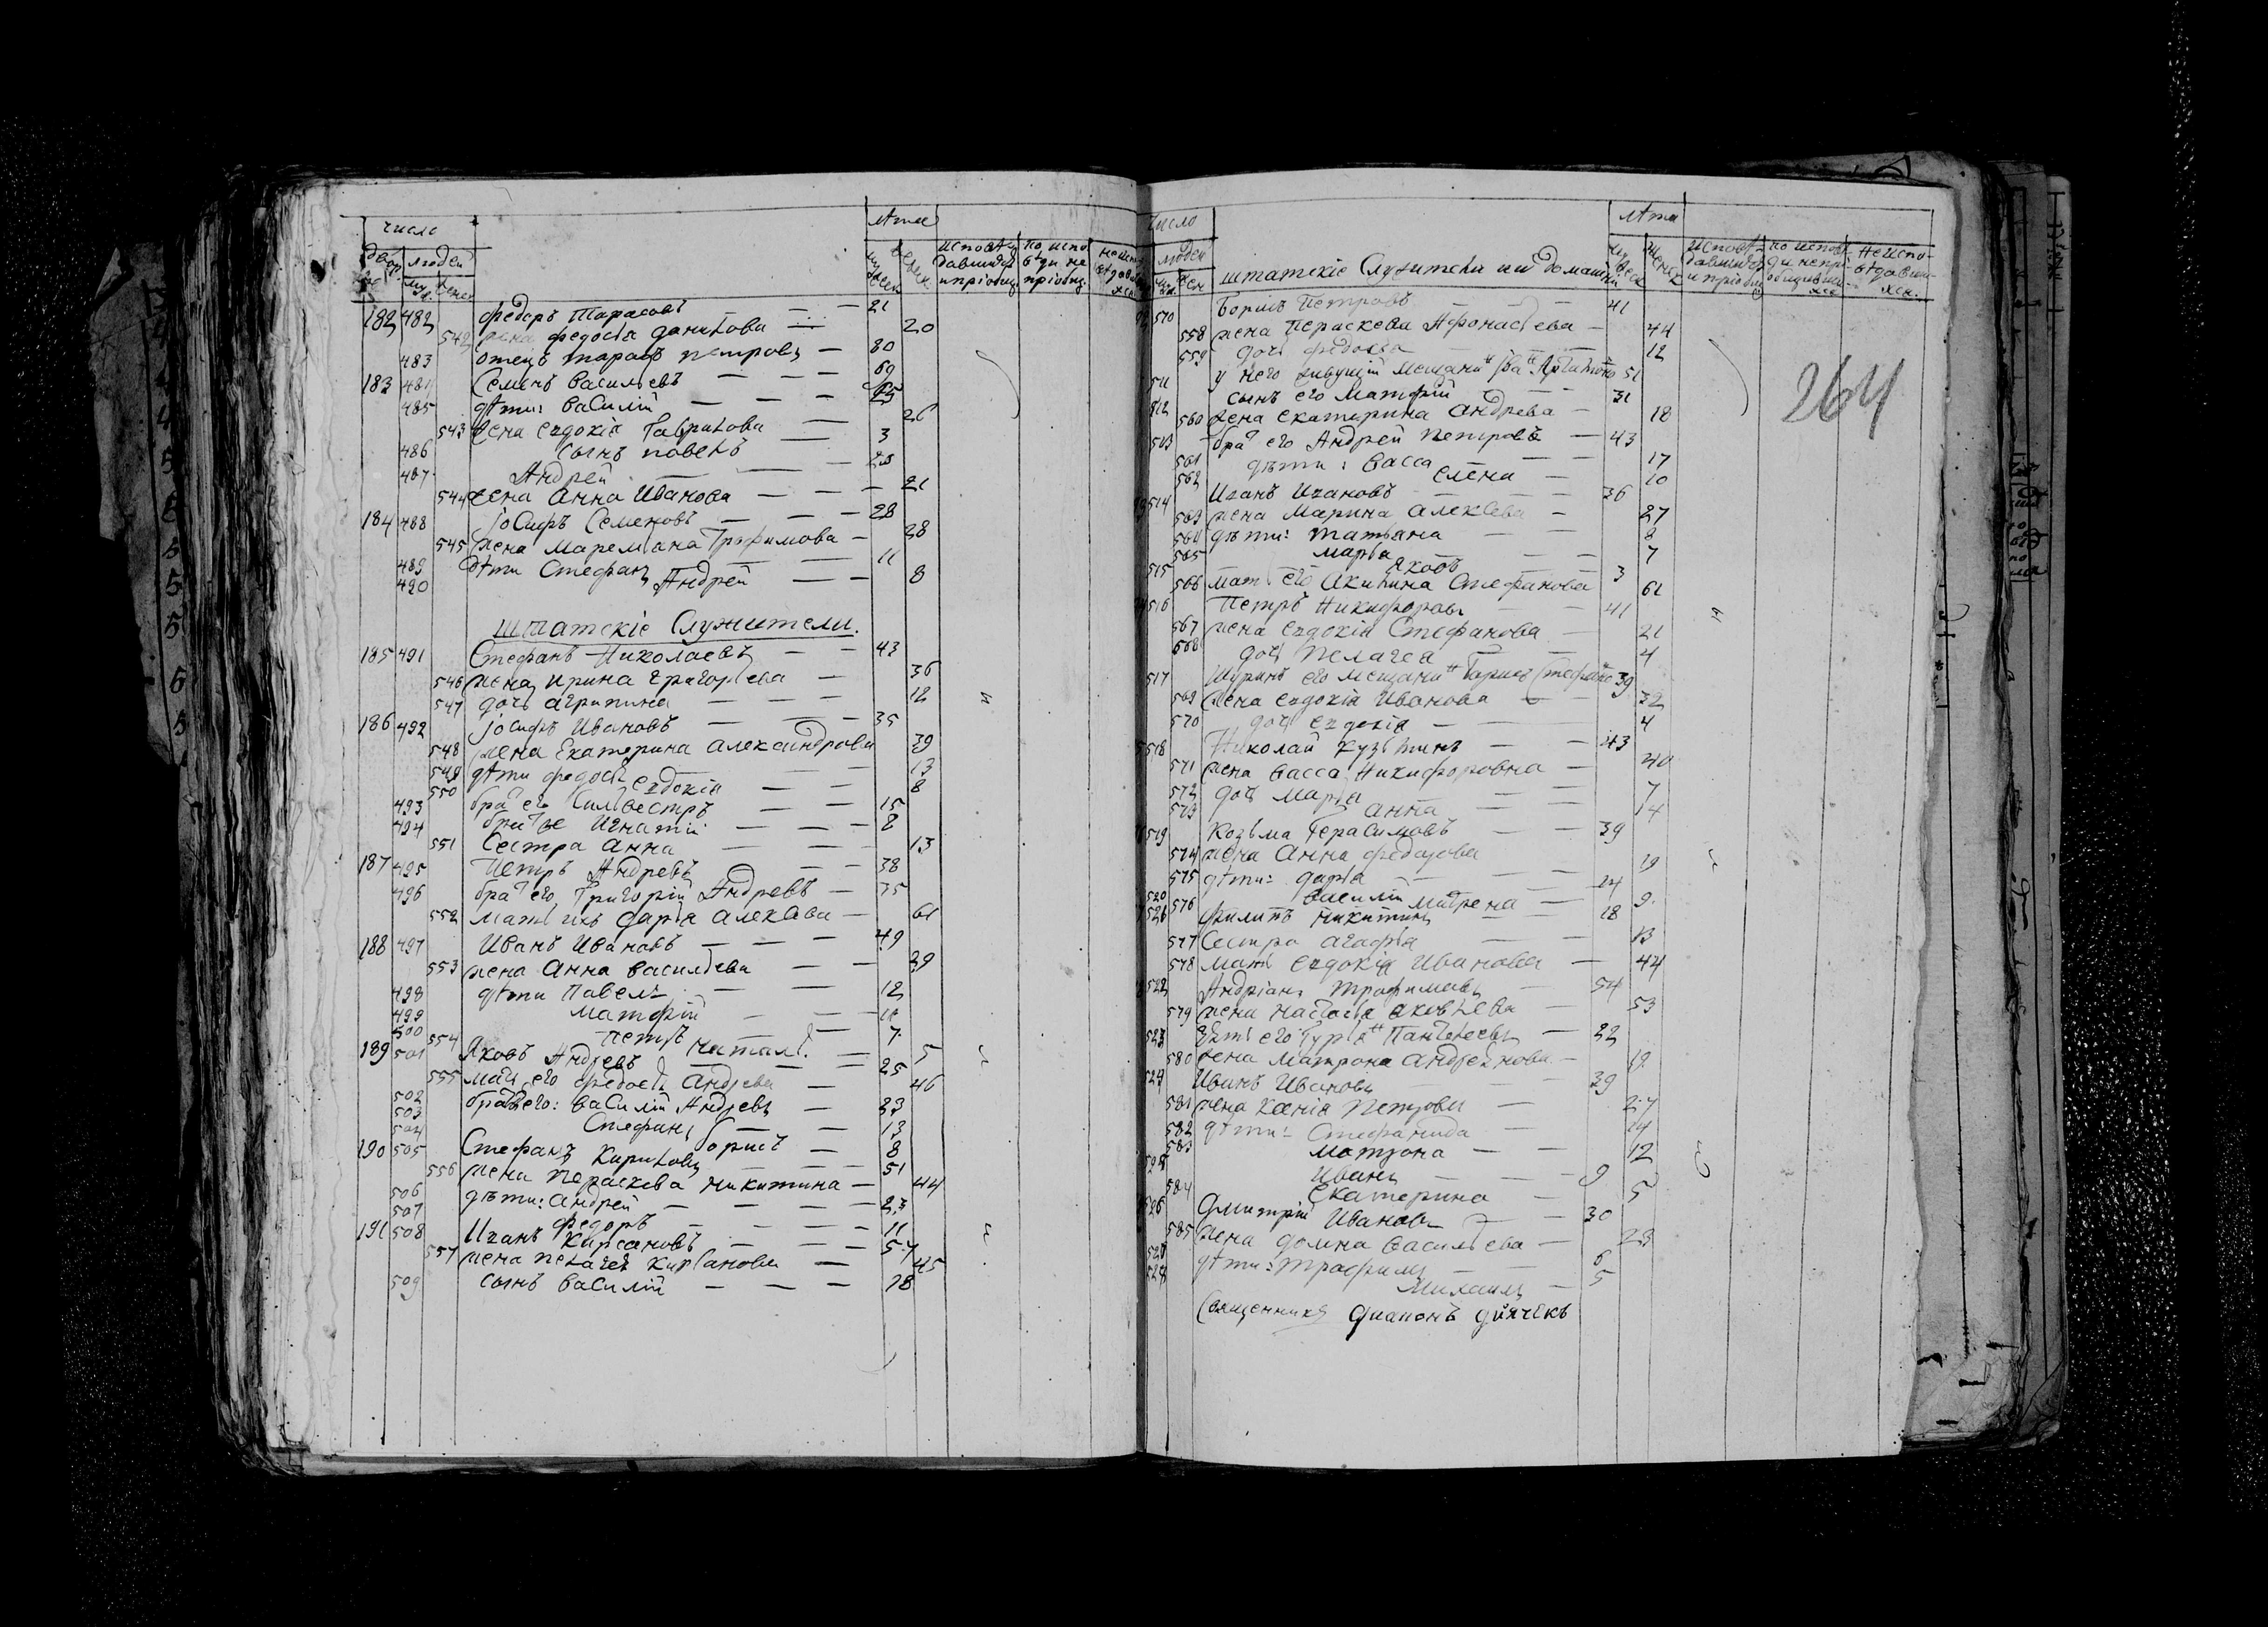 число
лѣта
двор.
людей
муж.
женск.
исповѣ
давшихся
и пріобщ.
по испо
вѣди не
пріобщ.
182 482 Федоръ Тарасовъ — — 21
542 жена Федосья Данилова 20
483 отецъ Тарасъ Петровъ — 80
183 484 Семенъ Васильевъ — — — 69
485 дѣти: Василій — — — 25
543 жена Евдокія Гаврилова — 26
486 сынъ Павелъ — 3
487 Андрей — — —
544 жена Анна Иванова — — — 21
184 488 Іосифъ Семеновъ — — — 28
545 жена Маремьана Трофимова — 28
489 дѣти Стефанъ — — — 11
490 Андрей — — 8
штатскіе Служители.
185 491 Стефанъ Николаевъ — — 43
546 жена Ирина Григорьева — 36
547 дочь Агрипина — — — 12
186 492 Іосифъ Ивановъ — — — 35
548 жена Екатерина Александрова 39
549 дѣти Федосья — — — 13
550 Евдокія — — 8
493 братъ его Силвестръ — — 15
494 Игнатій — — — 8
551 Сестра Анна — — — 13
187 495 Петръ Андревъ — — 38
496 братъ его Григорій Андревъ — 35
552 мать ихъ Дарья Алексѣева — 61
188 497 Иванъ Ивановъ — — — 49
553 жена Анна Васильева — — 39
498 дѣти Павелъ — — 12
499 Матфій — — 11
500 Петръ — — 7
554 Наталья — 5
189 501 Яковъ Андревъ — — 25
555 мать его Федосья Андрева — 46
502 братья его: Василій Андревъ — 23
503 Стефанъ — — 13
504 Борисъ — 8
190 505 Стефанъ Кириловъ — — — 51
556 жена Пераскева Никитина — 44
506 дѣти: Андрей — — — — 23
507 Федоръ — — — — 11
191 508 Иванъ Кирсановъ — — — 54
557 жена Пелагея Кирсанова — 45
509 сынъ Василій — — — 18
число
людей
штатскіе Служители ихъ домашни
лѣта
исповѣ-
давшихся
и пріобщ
по испов
ди непрі-
общивши-
хся
Неиспо-
вѣдавши-
хся.
264
510 Борисъ Петровъ — — — 41
558 жена Пераскева Афонасьева — 44
559 дочь Федосья — — — 12
511 у него живущій мещанинъ 51
512 сынъ его Матфій — — 31
560 жена Екатерина Андрева — 18
513 братъ его Андрей Петровъ — 43
561 дѣти: Васса — — 17
562 Елена — 10
514 Иванъ Ивановъ — — — 36
563 жена Марина Алексѣева — 27
564 дѣти: Татьяна — — 8
565 Марья — — — 7
515 Яковъ — — 3
566 мать его Акилина Стефанова 61
516 Петръ Никифоровъ — — 41
567 жена Евдокія Стефанова — 21
568 дочь Пелагея — — 4
517 Шуринъ его мещанинъ Борисъ Стефановъ 39
569 жена Евдокія Иванова — — 32
570 дочь Евдокія — — — 4
518 Николай Кузьминъ — — 43
571 жена Васса Никифоровна — 40
572 дочь Марья — — — 7
573 Анна — — 4
519 Козьма Герасимовъ — — 39
574 жена Анна Федорова 19
575 дѣти: Дарья — — —
520 Василій — — 14
576 Матрена — 9
521 Филипъ Никитинъ — — 18
577 Сестра Агафья — — 13
578 мать Евдокія Иванова — 44
522 Андріанъ Трофимовъ — 54
579 жена Настасья Яковлева — 53
523 Зять его — 22
580 жена Матрона Андреянова — 19
524 Иванъ Ивановъ — 39
581 жена Ксенія Петрова — 27
582 дѣти: Стефанида — 14
583 Матрона — — 12
525 Иванъ — — 9
584 Екатерина — 5
526 Дмитрій Ивановъ — — 30
585 жена Домна Васильева — 23
527 дѣти: Трофимъ — — 6
528 Михаилъ — 5
Священникъ Диаконъ Дьячекъ